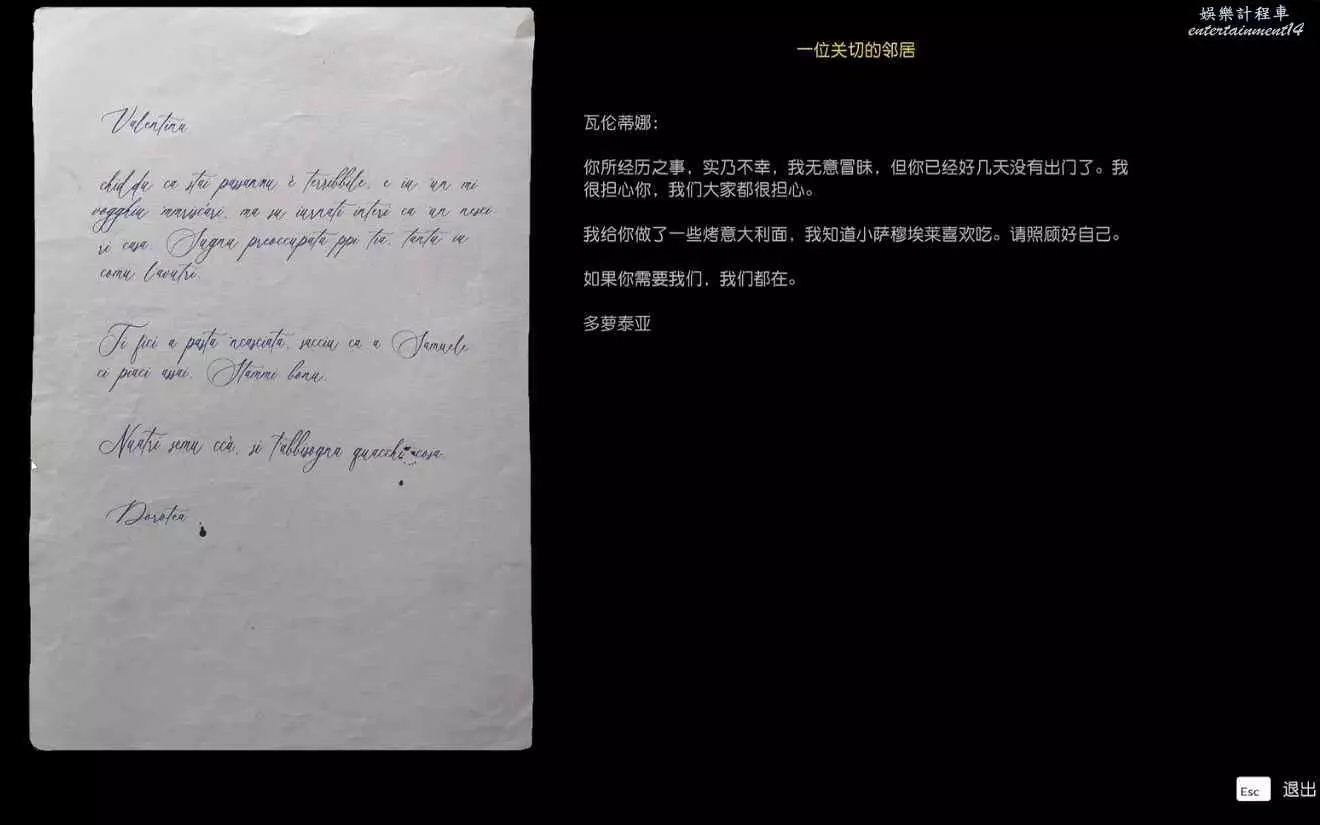 娛樂計程車
entertainment14
一位关切的邻居
Valentina
chiddu ca stai passannu è terribbile, e iu 'un mi
vogghiu 'mmriscári, ma su iurnati interi ca 'un nesci
ri casa. Sugnu preoccupata ppi tia, tantu iu
comu l'autri.
Ti fici a pasta 'ncasciata, sacciu ca a Samuele
ci piaci assai. Stammi bona.
Nuatri semu ccà, si t'abbisogna quacchi cosa.
Dorotea
瓦伦蒂娜：
你所经历之事，实乃不幸，我无意冒昧，但你已经好几天没有出门了。我
很担心你，我们大家都很担心。
我给你做了一些烤意大利面，我知道小萨穆埃莱喜欢吃。请照顾好自己。
如果你需要我们，我们都在。
多萝泰亚
Esc 退出